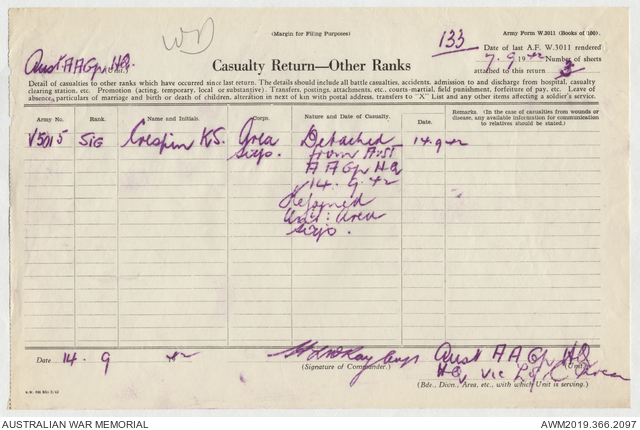 WD
(Margin for Filing Purposes)
133
Army Form W.3011 (Books of 100).
Date of last A.F. W.3011 rendered
7.9.1942 Number of sheets
attached to this return 3
Aust A A Gp HQ (Unit.)
Casualty Return—Other Ranks
Detail of casualties to other ranks which have occurred since last return. The details should include all battle casualties, accidents, admission to and discharge from hospital, casualty
clearing station, etc. Promotion (acting, temporary, local or substantive). Transfers, postings, attachments, etc., courts-martial, field punishment, forfeiture of pay, etc. Leave of
absence, particulars of marriage and birth or death of children, alteration in next of kin with postal address, transfers to "X" List and any other items affecting a soldier's service.
Army No. Rank. Name and Initials. Corps. Nature and Date of Casualty. Date. Remarks (In the case of casualties from wounds or disease, any available information for communication to relatives should be stated.)
V5015 SIG Crespin KS. Area Detached 14.9.42
Sigs. from Aust
A A Gp HQ
14. 9. 42
Rejoined
Unit: Area
Sigs.
Date 14. 9 42
(Signature of Commander.)
Aust A A Gp HQ
HQ Vic L of C Area
(Bde., Divn., Area, etc., with which Unit is serving.)
AUSTRALIAN WAR MEMORIAL
AWM2019.366.2097